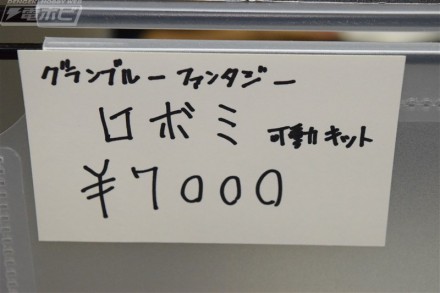 電ホビ
グランブルーファンタジー
ロボミ 可動キット
¥7000